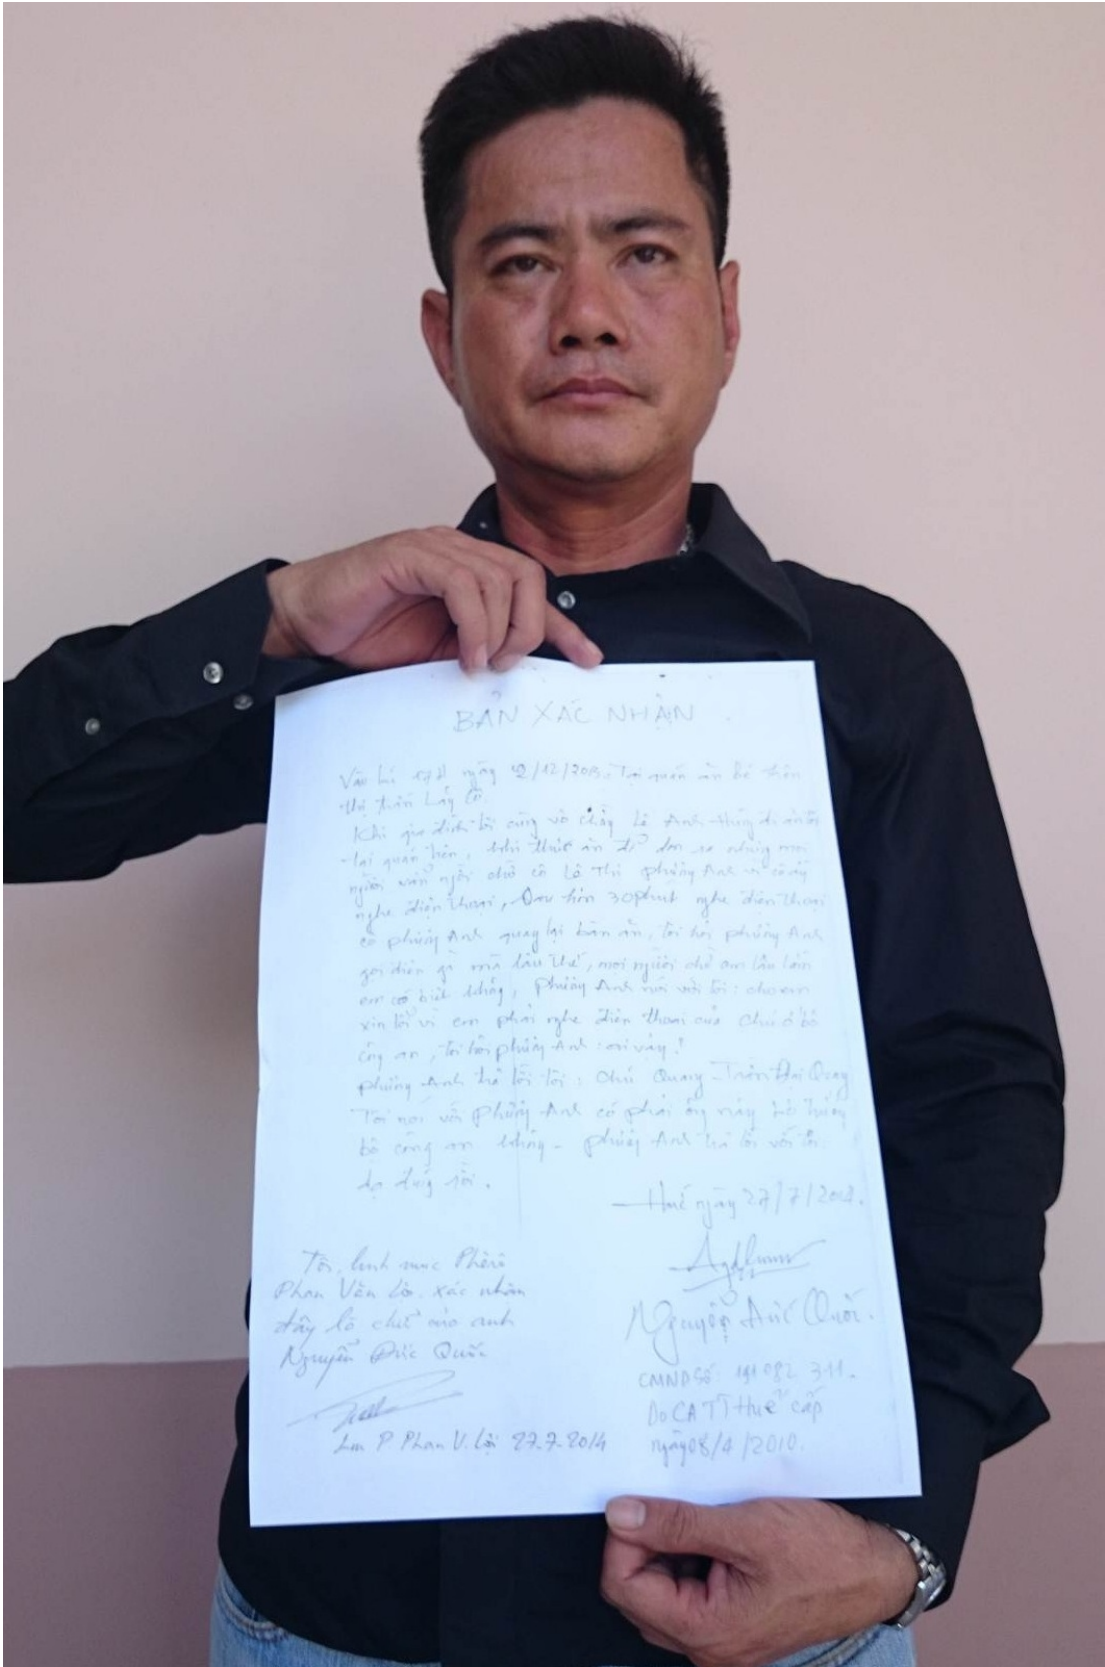 BẢN XÁC NHẬN
Vào lúc ngày 2/12/2013. Tại quán ăn bé trên
thị trấn Lăng Cô.
Khi gia đình tôi cùng vợ chồng Lê Anh Hùng đi ăn tối
tại quán trên, khi thức ăn để dọn ra nhưng mọi
người vẫn ngồi chờ cô Lê Thị phương Anh vì cô ấy
nghe điện thoại, Sau hơn 30phút nghe điện thoại
cô phương Anh quay lại bàn ăn, tôi hỏi phương Anh
gọi điện gì mà lâu thế, mọi người chờ em lâu lắm
em có biết không, phương Anh nói với tôi: cho em
xin lỗi vì em phải nghe điện thoại của chú ở bộ
công an, tôi hỏi phương Anh: ai vậy!
phương Anh trả lời tôi: chú Quang - Trần Đại Quang
Tôi nói với phương Anh có phải ông này bộ trưởng
bộ công an không - phương Anh trả lời với tôi:
dạ đúng rồi.
Huế ngày 27/7/2014.
Tôi, linh mục Phêrô
Phan Văn Lợi, xác nhận
đây là chữ của anh
Nguyễn Đức Quốc
Lm P Phan V. Lợi 27.7.2014
Nguyễn Đức Quốc.
CMND Số: 191 082 311.
Do CA TT Huế cấp
ngày 08/4/2010.